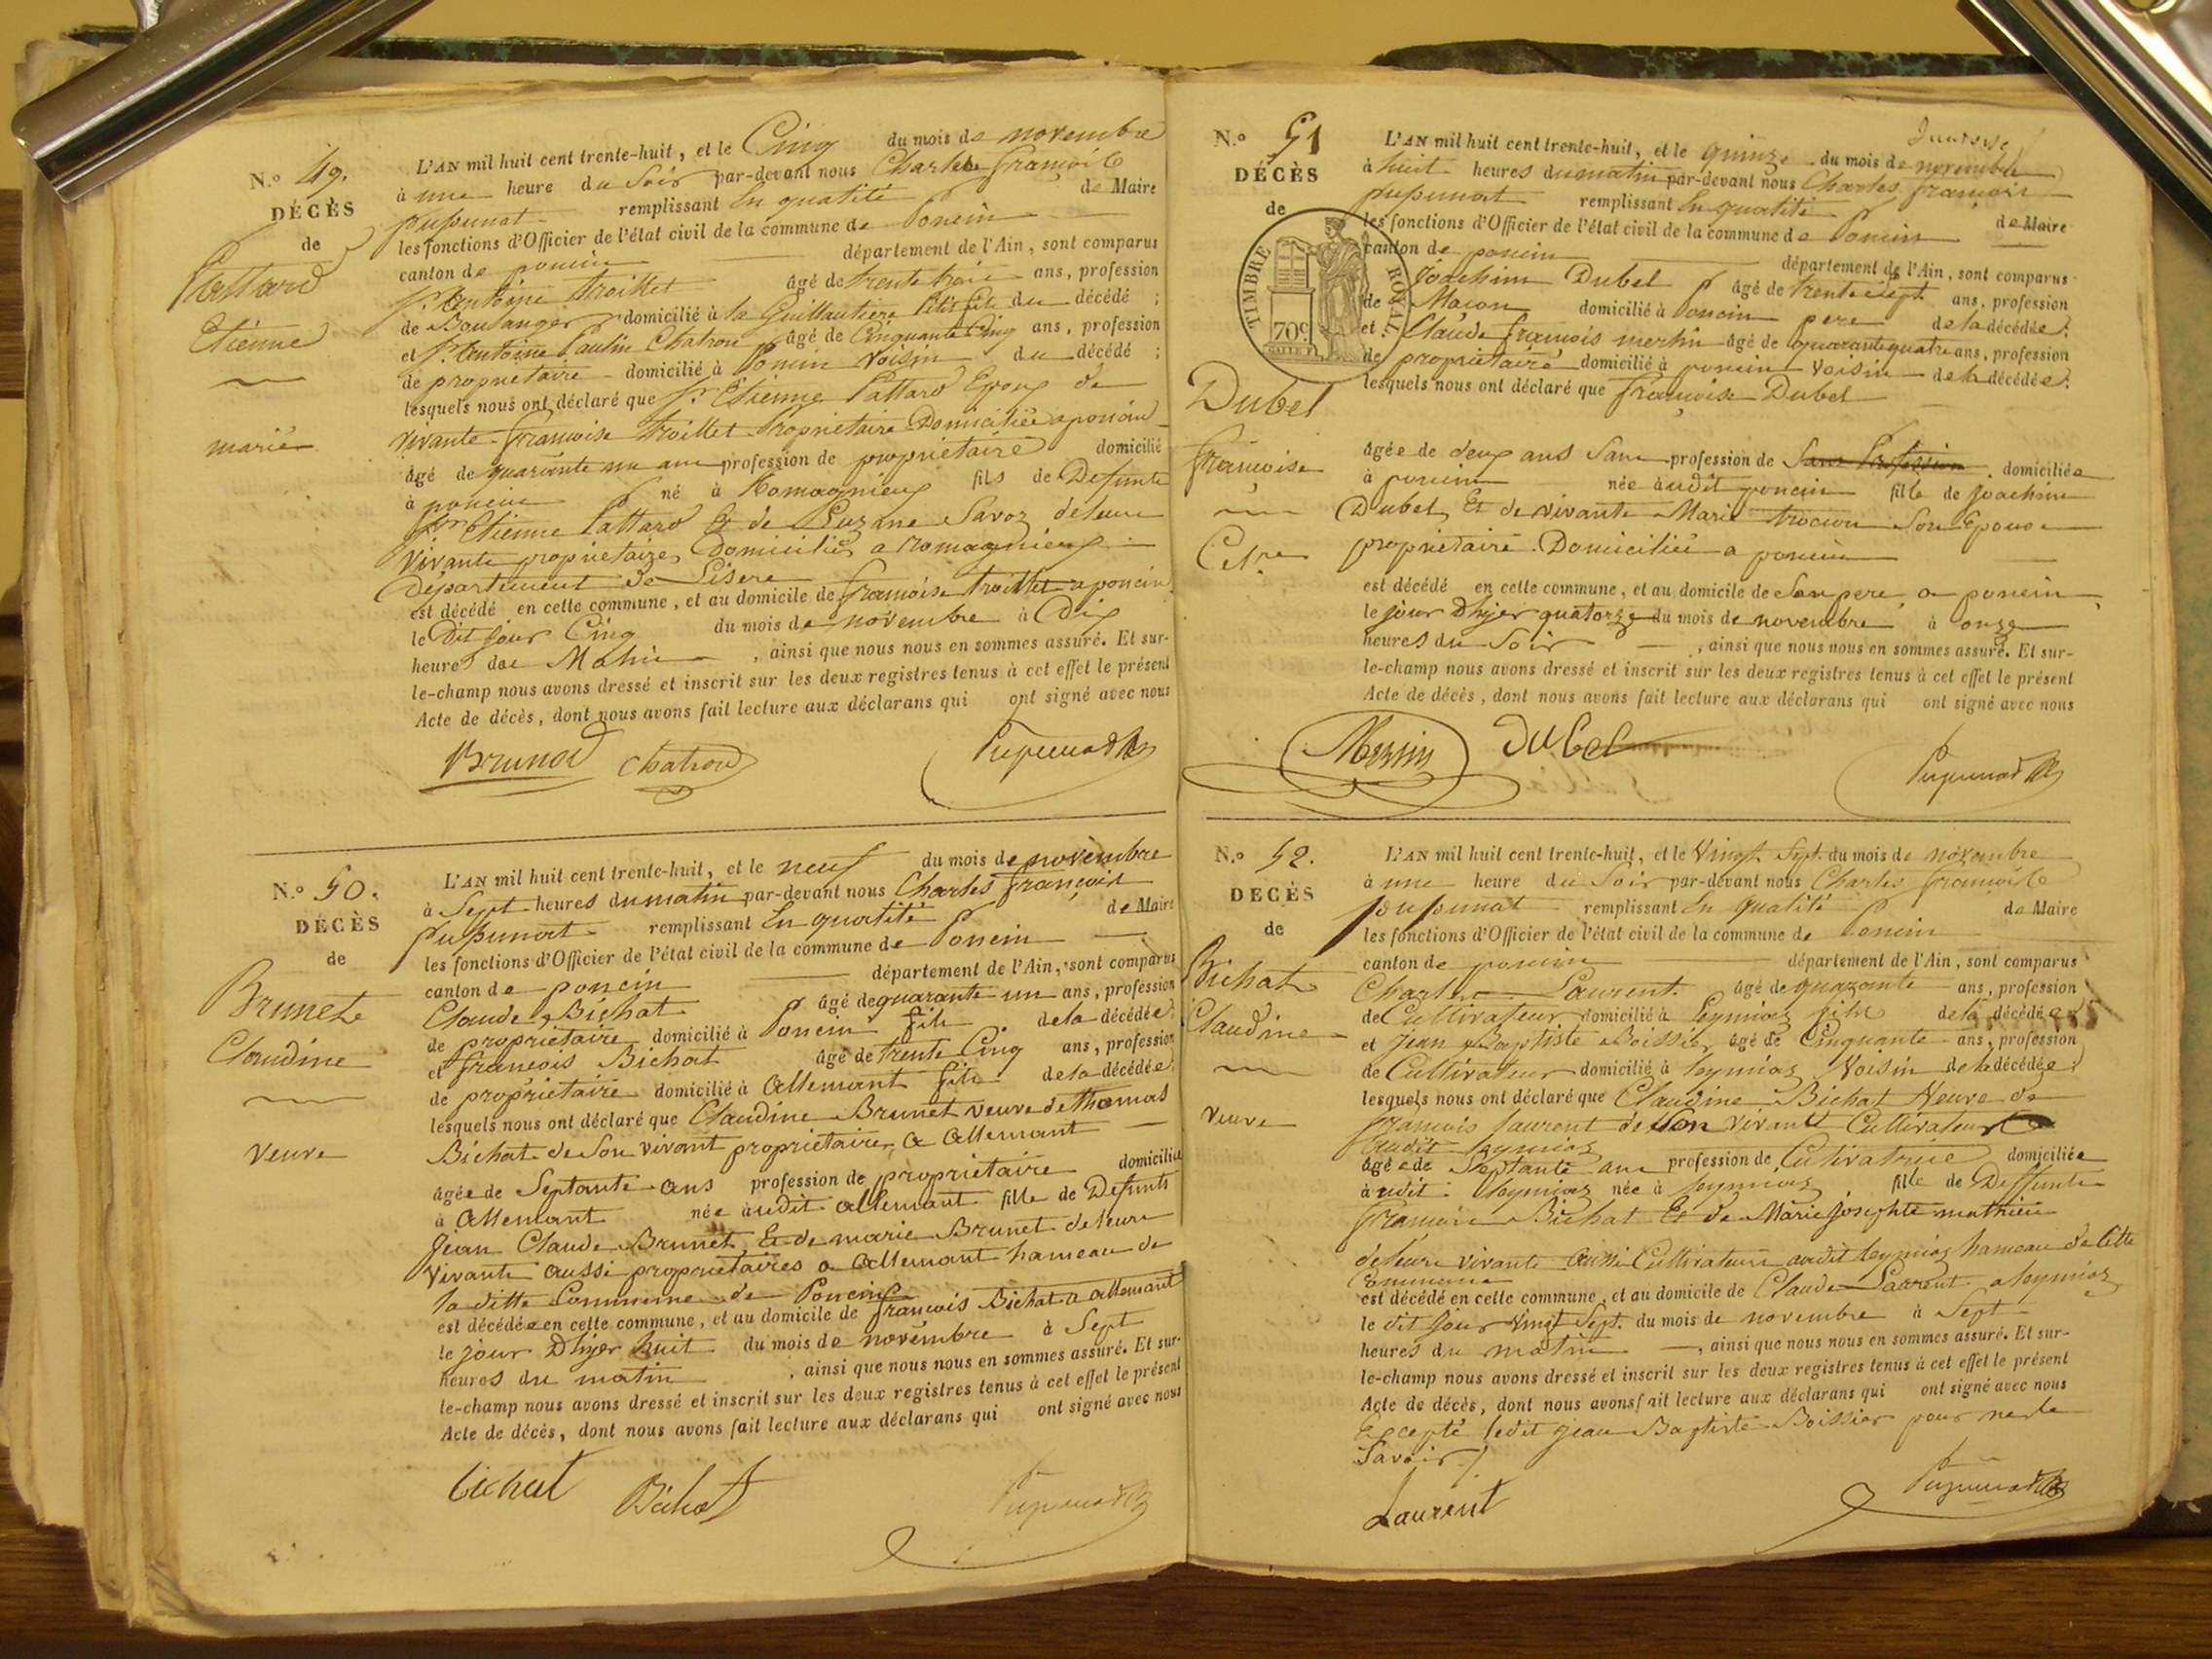 N.o 49.
DÉCÈS
de
Pattard
Etienne
marié
L'AN mil huit cent trente-huit, et le Cinq du mois de novembre
à une heure du Soir par-devant nous Charles françois
pupunat remplissant En qualité de Maire
les fonctions d'Officier de l'état civil de la commune de Poncin
canton de poncin département de l'Ain, sont comparus
Sr. Antoine Troillet âgé de trente trois ans, profession
de Boulanger domicilié à la Guillautière du décédé ;
et Sr. Antoine Paulin Chatron âgé de Cinquante Cinq ans, profession
de proprietaire domicilié à Poncin voisin du décédé ;
lesquels nous ont déclaré que Sr. Etienne Pattard Epoux de
vivante françoise Troillet Proprietaire Domiciliée a poncin
âgé de quarante un ans profession de proprietaire domicilié
à poncin né à Romagnieux fils de Defunts
Sr Etienne Pattard Et de Suzane Savoz deleur
vivants proprietaires Domiciliés a romagnieux
Departement de Lisere
est décédé en cette commune, et au domicile de françoise troillet a poncin
le Dit jour Cinq du mois de novembre à Dix
heures du Matin , ainsi que nous nous en sommes assuré. Et sur-
le-champ nous avons dressé et inscrit sur les deux registres tenus à cet effet le présent
Acte de décès, dont nous avons fait lecture aux déclarans qui ont signé avec nous
Chatron Pupunat
N.o 50.
DÉCÈS
de
Brunet
Claudine
veuve
L'AN mil huit cent trente-huit, et le neuf du mois de novembre
à Sept heures du matin par-devant nous Charles françois
pupunat remplissant En qualité de Maire
les fonctions d'Officier de l'état civil de la commune de Poncin
canton de poncin département de l'Ain, sont comparus
Claude Bichat âgé de quarante un ans, profession
de proprietaire domicilié à Poncin fils de la décédée ;
et françois Bichat âgé de trente Cinq ans, profession
de propriétaire domicilié à Allemant fils de la décédée ;
lesquels nous ont déclaré que Claudine Brunet veuve de Thomas
Bichat de Son vivant proprietaire a Allemant
âgée de Septante ans profession de proprietaire domiciliée
à Allemant née audit allemant fille de Defunts
Jean Claude Brunet Et de marie Brunet deleur
vivants aussi proprietaires a Allemant hameau de
la ditte Commune de Poncin
est décédée en cette commune, et au domicile de françois Bichat a allemant
le jour Dhyer huit du mois de novembre à Sept
heures du matin , ainsi que nous nous en sommes assuré. Et sur-
le-champ nous avons dressé et inscrit sur les deux registres tenus à cet effet le présent
Acte de décès, dont nous avons fait lecture aux déclarans qui ont signé avec nous
Bichat Bichat Pupunat
N.o 51
DÉCÈS
de
TIMBRE ROYAL
70c.
Dubel
françoise
Celre
L'AN mil huit cent trente-huit, et le quinze du mois de novembre
à huit heures du matin par-devant nous Charles françois
pupunat remplissant En qualité de Maire
les fonctions d'Officier de l'état civil de la commune de Poncin
canton de poncin département de l'Ain, sont comparus
Joachim Dubel âgé de trente sept ans, profession
de Maçon domicilié à Poncin pere de la décédée ;
et Claude françois merlin âgé de quarante quatre ans, profession
de propriétaire domicilié à poncin voisin de la décédée ;
lesquels nous ont déclaré que françoise Dubel
âgée de deux ans Sans profession de Sans Profession domiciliée
à poncin née audit poncin fille de Joachim
Dubel Et de vivante Marie Son Epouse
propriétaire Domiciliée a poncin
est décédé en cette commune, et au domicile de Son pere a poncin
le jour Dhyer quatorze du mois de novembre à onze
heures du Soir , ainsi que nous nous en sommes assuré. Et sur-
le-champ nous avons dressé et inscrit sur les deux registres tenus à cet effet le présent
Acte de décès, dont nous avons fait lecture aux déclarans qui ont signé avec nous
Dubel Pupunat
N.o 52.
DÉCÈS
de
Bichat
Claudine
veuve
L'AN mil huit cent trente-huit, et le Vingt Sept du mois de novembre
à une heure du Soir par-devant nous Charles françois
pupunat remplissant En qualité de Maire
les fonctions d'Officier de l'état civil de la commune de Poncin
canton de poncin département de l'Ain, sont comparus
Charles Laurent âgé de quarante ans, profession
de Cultivateur domicilié à Leymiaz fils de la décédée
et Jean Baptiste Boissier âgé de Cinquante ans, profession
de Cultivateur domicilié à leymiaz Voisin de la décédée ;
lesquels nous ont déclaré que Claudine Bichat Veuve de
françois laurent de Son vivant Cultivateur
audit leymiaz
âgée de Septante ans profession de Cultivatrice domiciliée
audit leymiaz née à leymiaz fille de Deffunts
françois Bichat Et de Marie Josephte mathieu
deleur vivants aussi Cultivateurs audit leymiaz hameau de Cette
Commune
est décédé en cette commune, et au domicile de Claude Laurent a leymiaz
le dit jour vingt Sept du mois de novembre à Sept
heures du matin , ainsi que nous nous en sommes assuré. Et sur-
le-champ nous avons dressé et inscrit sur les deux registres tenus à cet effet le présent
Acte de décès, dont nous avons fait lecture aux déclarans qui ont signé avec nous
Excepté ledit jean Baptiste Boissier pour ne le
Savoir
Laurent Pupunat